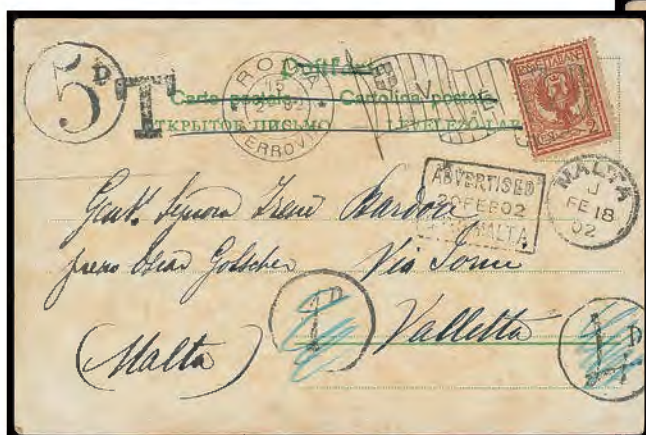 5D T ROMA
Postkarte
Carte postale Cartolina postale
ОТКРЫТОЕ ПИСЬМО LEVELEZŐ-LAP
FERROVIA
2
ADVERTISED
20 FEB 02
MALTA
MALTA
J
FE 18
02
Gent. Signora Irene Bardon
presso Oscar Gollcher Via
Valletta
(Malta)
1D